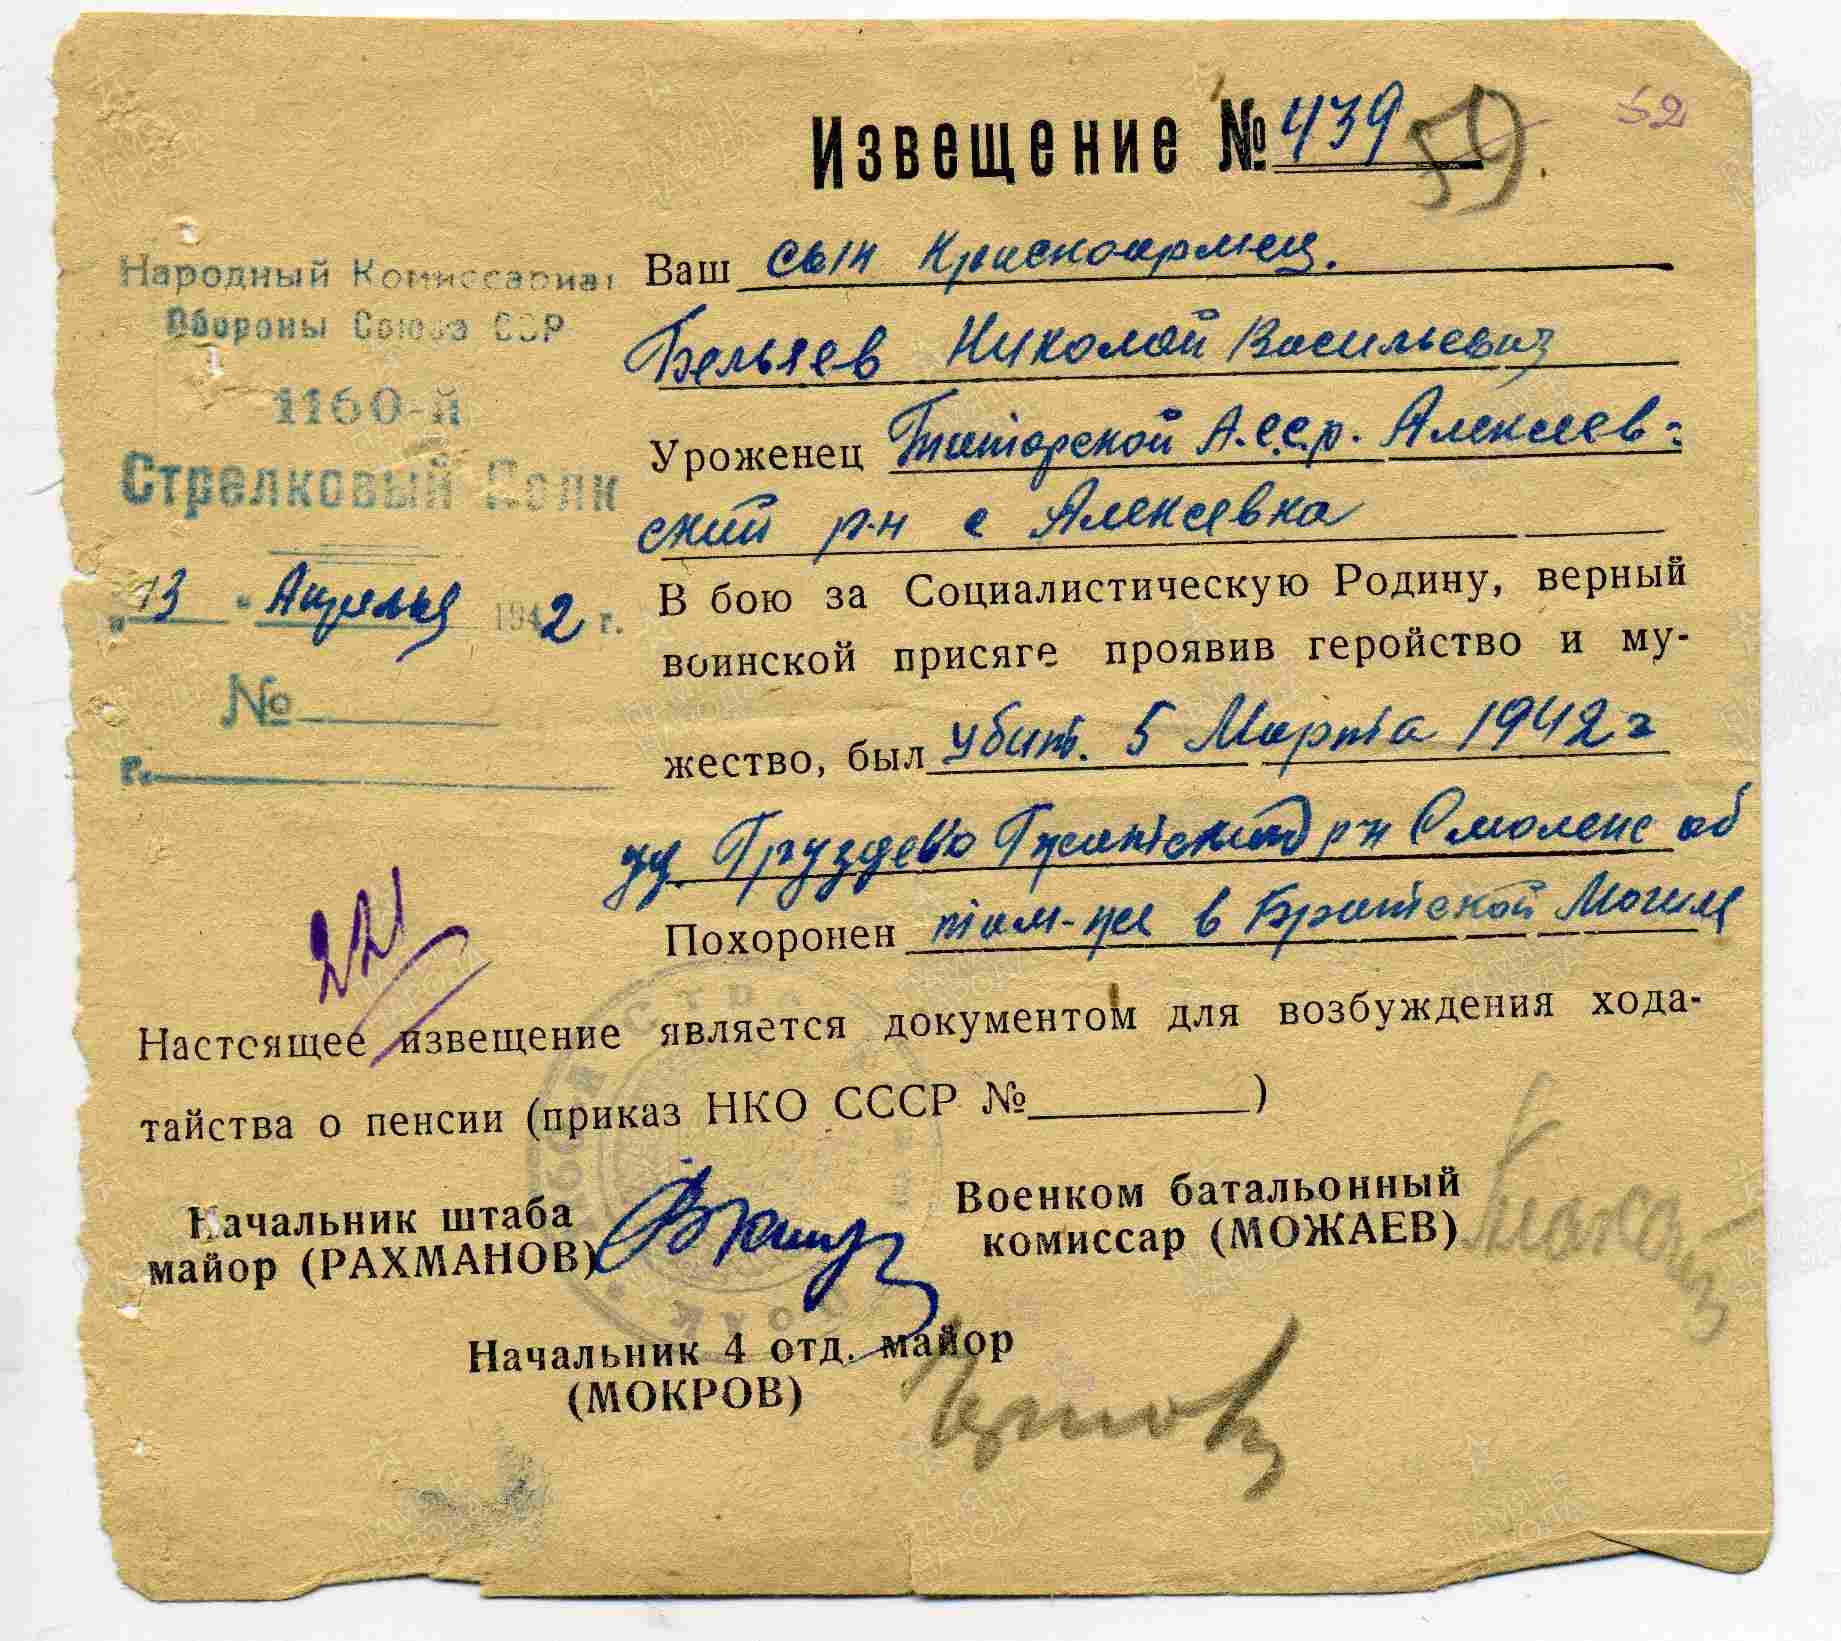 52
Извещение № 439
59
Народный Комиссариат
Обороны Союза ССР
1160-й
Стрелковый Полк
"13" Апрелья 1942 г.
№
г.
Ваш сын красноармец.
Бельяев Николай Васильевич
Уроженец Татарской А.С.С.р. Алексеев-
ский р-н с Алексевка
В бою за Социалистическую Родину, верный
воинской присяге проявив геройство и му-
жество, был убит. 5 Марта 1942 г
Груздево Гжатский р-н Смоленс об
Похоронен там-же в Братской Могиле
221
Настоящее извещение является документом для возбуждения хода-
тайства о пенсии (приказ НКО СССР № )
Начальник штаба
майор (РАХМАНОВ)
Военком батальонный
комиссар (МОЖАЕВ)
Начальник 4 отд. майор
(МОКРОВ)
ПАМЯТЬ НАРОДА